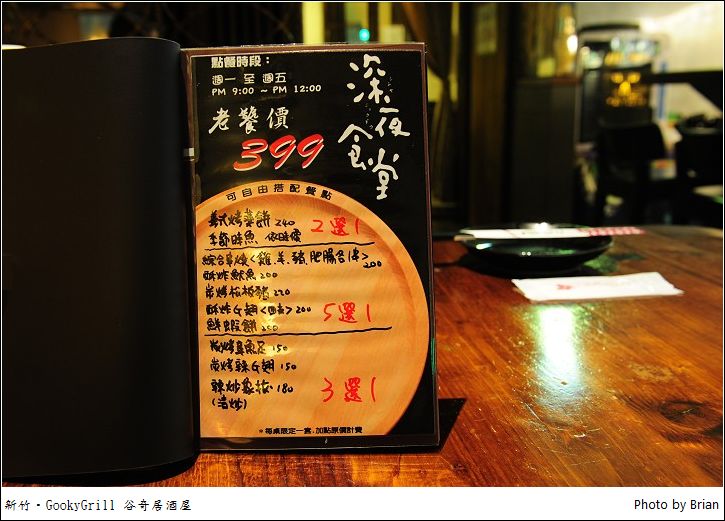 點餐時段：
週一 至 週五
PM 9:00 ~ PM 12:00
深夜食堂
老饕價
399
可自由搭配餐點
美式烤薯餅 240
季節時魚 依時價
2選1
綜合串燒<雞、羊、豬、肥腸各1串> 200
酥炸魷魚 200
炭烤松板豬 220
酥炸G翅<四支> 200
鮮蝦餅 250
5選1
150
炭烤辣G翅 150
辣炒 180
3選1
*每桌限定一套,加點原價計費
新竹‧GookyGrill 谷奇居酒屋
Photo by Brian